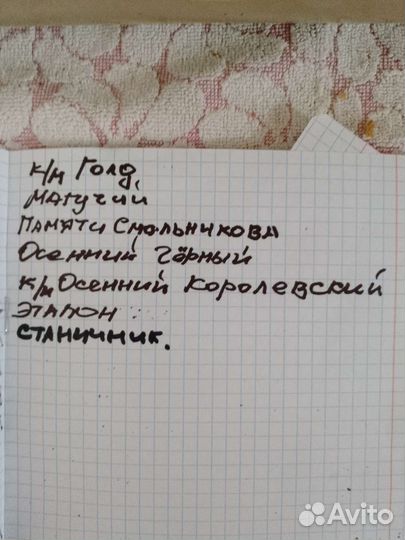 к/м Голд
Могучий
Памяти Смольникова
Осенний Чёрный
к/м Осенний Королевский
Эталон
Станичник.
Avito